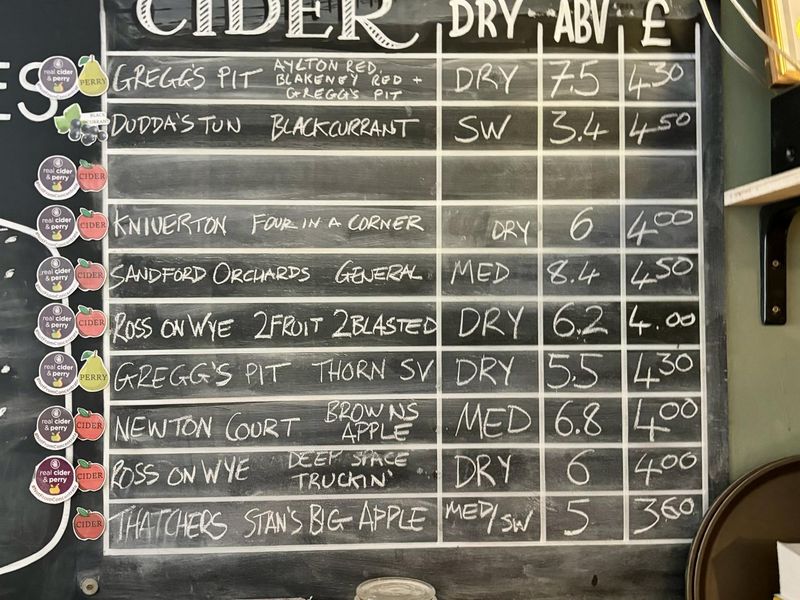 CIDER DRY ABV £
GREGG'S PIT AYLTON RED, BLAKENEY RED + GREGG'S PIT DRY 7.5 4.30
DUDDA'S TUN BLACKCURRANT SW 3.4 4.50
KNIVERTON FOUR IN A CORNER DRY 6 4.00
SANDFORD ORCHARDS GENERAL MED 8.4 4.50
ROSS ON WYE 2FRUIT 2BLASTED DRY 6.2 4.00
GREGG'S PIT THORN SV DRY 5.5 4.30
NEWTON COURT BROWNS APPLE MED 6.8 4.00
ROSS ON WYE DEEP SPACE TRUCKIN' DRY 6 4.00
THATCHERS STAN'S BIG APPLE MED/SW 5 3.60
ES
real cider & perry PERRY
BLACK CURRANT
real cider & perry CIDER
real cider & perry CIDER
real cider & perry CIDER
real cider & perry CIDER
real cider & perry PERRY
real cider & perry CIDER
real cider & perry CIDER
CIDER